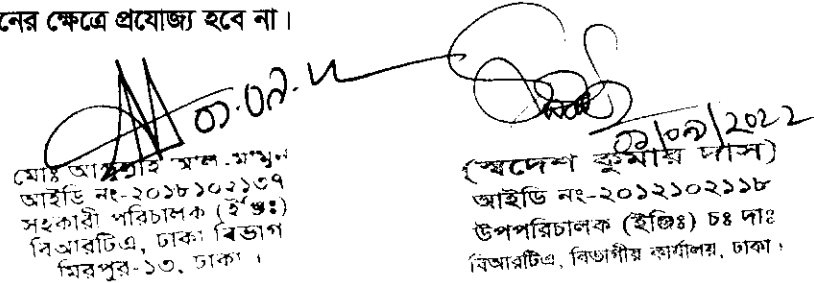 নের ক্ষেত্রে প্রযোজ্য হবে না।
মোঃ আল-মামুন
আইডি নং-২০১৮১০২১৩৭
সহকারী পরিচালক (ইঞ্জিঃ)
বিআরটিএ, ঢাকা বিভাগ
মিরপুর-১৩, ঢাকা ।
(স্বদেশ কুমার দাস)
আইডি নং-২০১২১০২১১৮
উপপরিচালক (ইঞ্জিঃ) চঃ দাঃ
বিআরটিএ, বিভাগীয় কার্যালয়, ঢাকা।